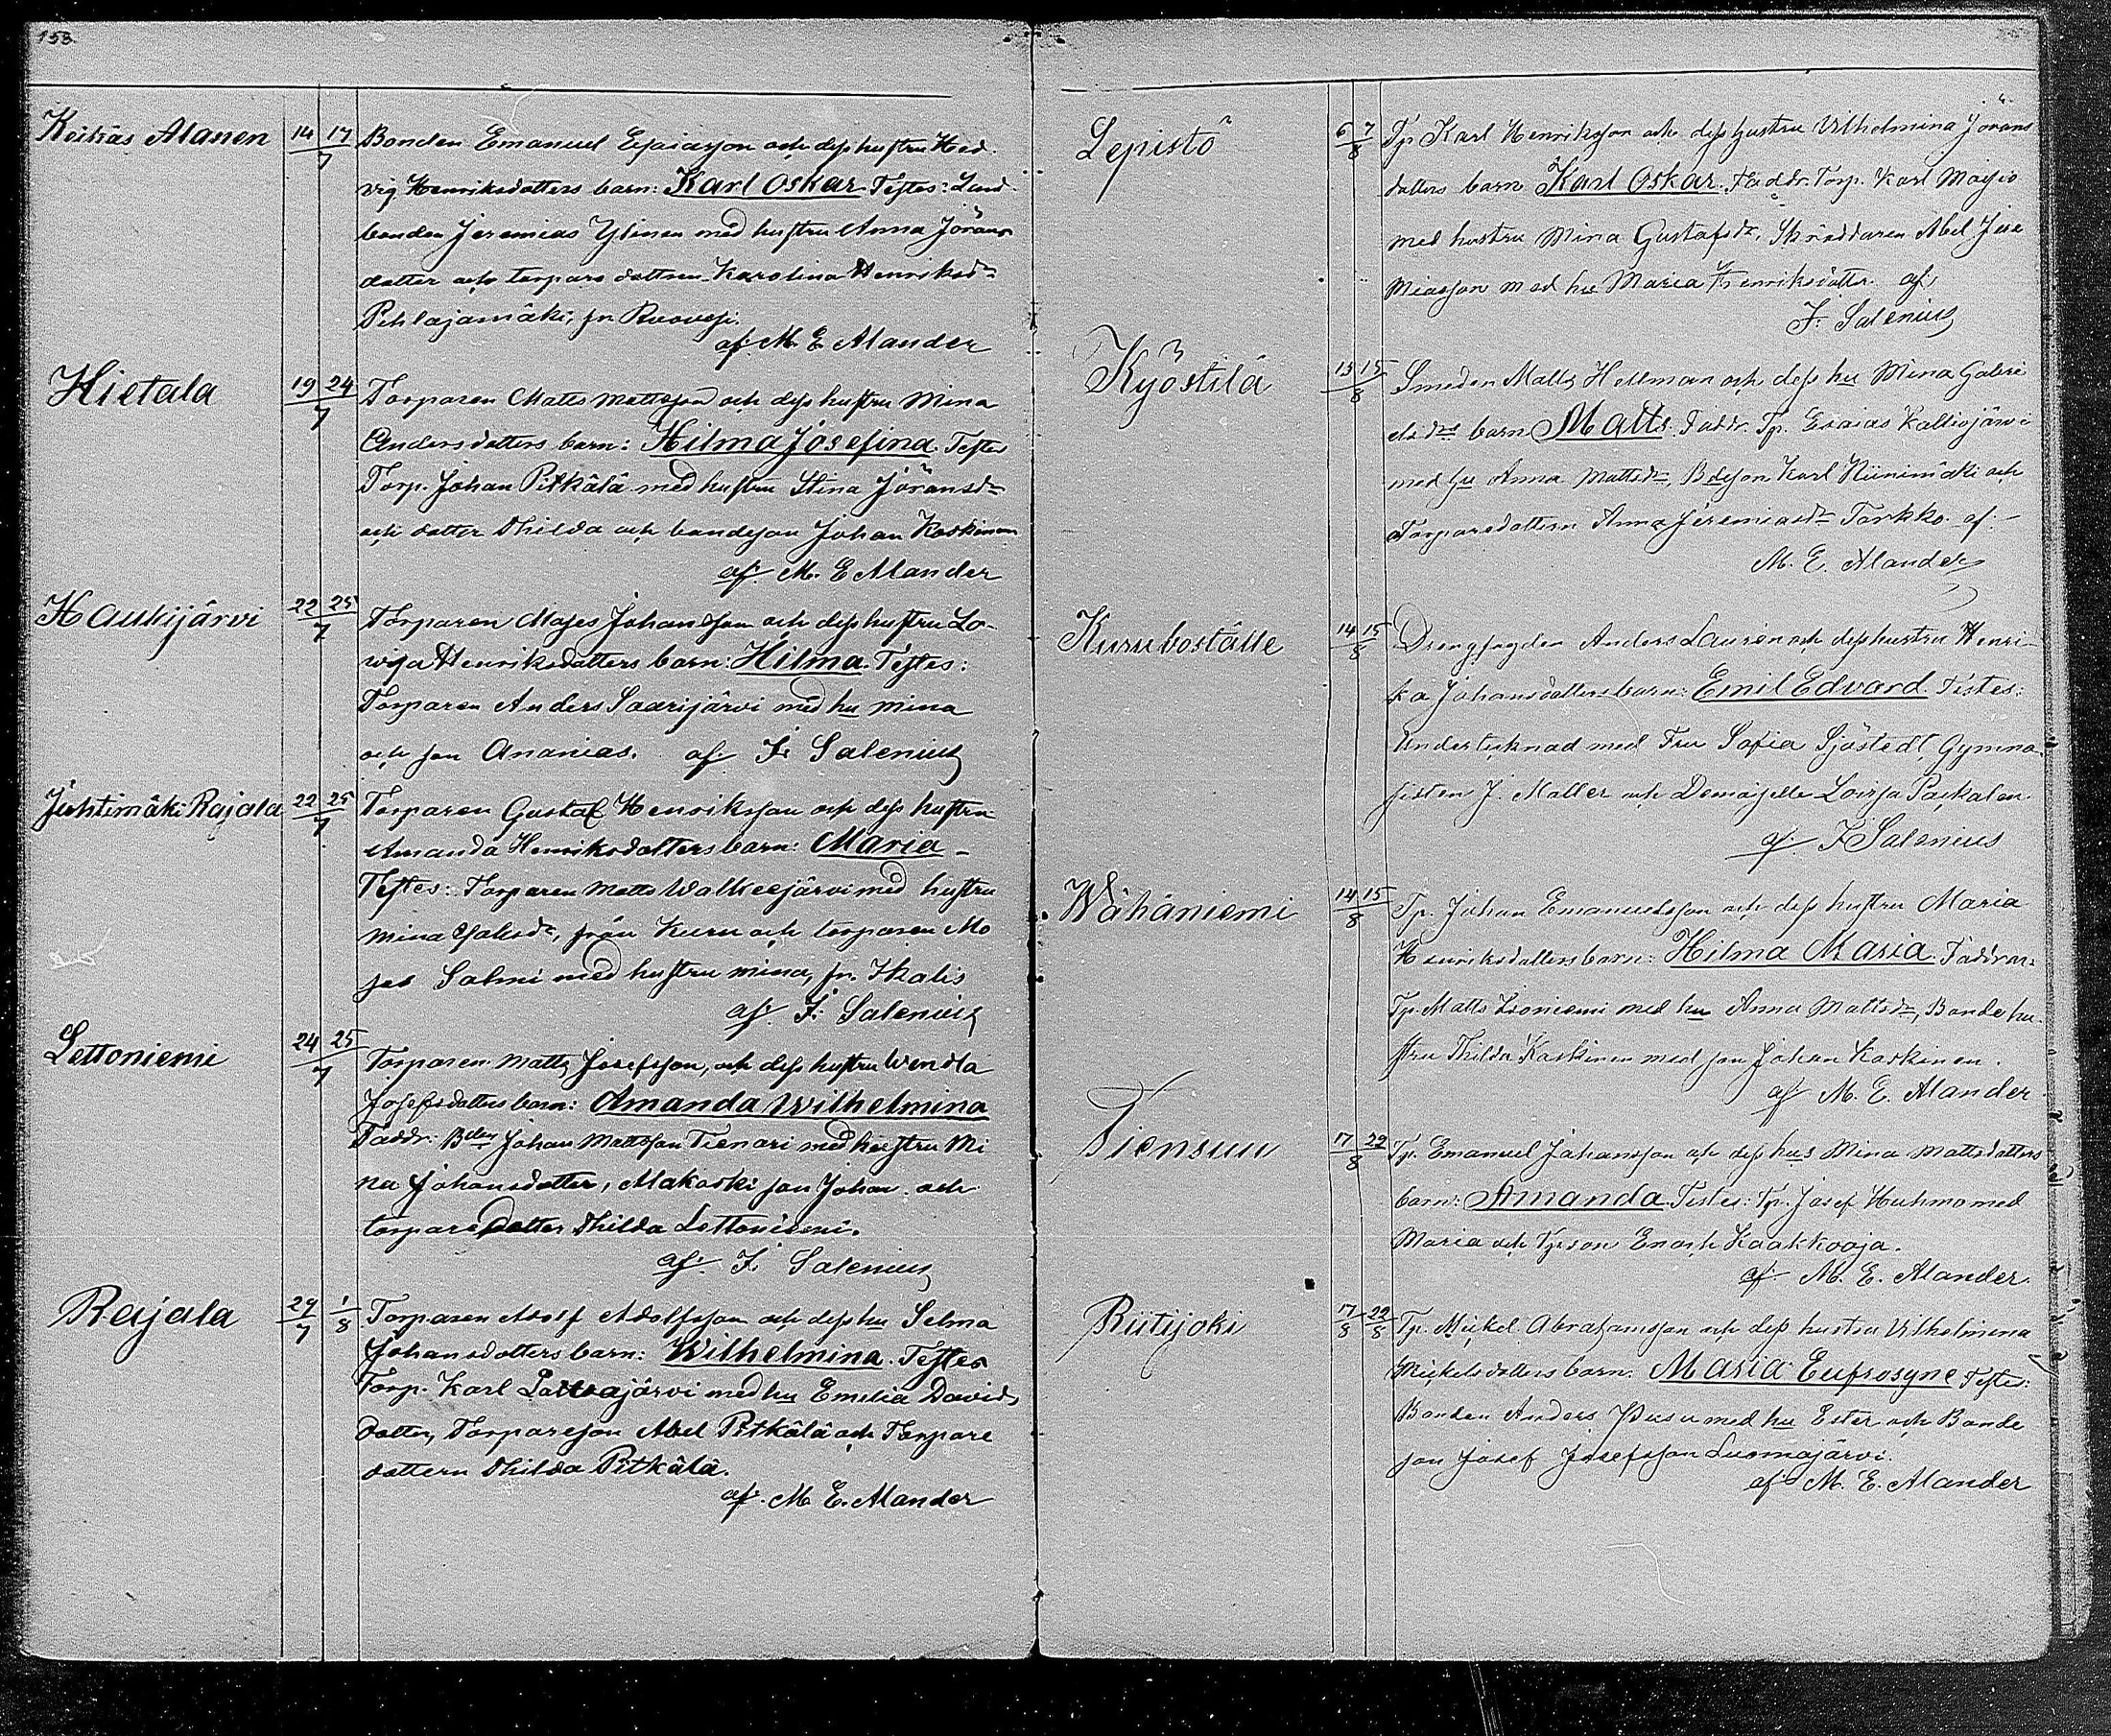 153.
Keihäs Alanen 14 17/7 Bonden Emanuel Esaiasson och dess hustru Hed
vig Henriksdotters barn: Karl Oskar. Testes: Land
bonden Jeremias Ylinen med hustru Anna Jörans
dotter och torpare dottren Karolina Henriksdr
Pihlajamäki, fr. Ruovesi.
af M. E. Alander
Hietala 19 24/7 Torparen Matts Mattsson och dess hustru Mina
Andersdotters barn: Hilma Josefina. Testes
Torp. Johan Pitkälä med hustru Stina Jöransdr
och dotter Thilda och bondeson Johan Koskinen
af M. E Alander
Haukijärvi 22 25/7 Torparen Moses Johansson och dess hustru Lo-
wisa Henriksdotters barn: Hilma. Testes:
Torparen Anders Saarijärvi med hu Mina
och son Ananias. af F. Salenius
Juhtimäki Rajala 22 25/7 Torparen Gustaf Henriksson och dess hustru
Amanda Henriksdotters barn: Maria -
Testes: Torparen Matts Walkeejärvi med hustru
Mina , från Kuru och torparen Mo
ses Salmi med hustru Mina, fr. Ikalis
af F. Salenius
Lettoniemi 24 25/7 Torparen Matts Josefsson, och dess hustru Wendla
Josefsdotters barn: Amanda Wilhelmina
Faddr: Bden Johan Mattsson Tienari med hustru Mi
na Johansdotter, Makoski son Johan och
torparedotter Thilda Lettoniemi.
af F. Salenius
Rajala 29/7 1/8 Torparen Adolf Adolfsson och dess hu Selma
Johansdotters barn: Wilhelmina. Testes
Torp. Karl Lattajärvi med hu Emelia Davids
dotter, Torpareson Abel Pitkälä och Torpare
dottern Thilda Pitkälä.
af. M E. Alander
Lepistö 6 7/8 Tp Karl Henriksson och dess hustru Vilhelmina Jörans
dotters barn Karl Oskar. Faddr. Torp. Karl Moisio
med hustru Mina Gustafsdr, Skräddaren Abel Jere
miasson med hu Maria Henriksdotter. af
F. Salenius
Kyöstilä 13 15/8 Smeden Matts Hellman och dess hu Mina Gabri
elsdrs barn Matts. Faddr. Tp. Esaias Kalliojärvi
med hu Anna Mattsdr, Bdeson Karl Niinimäki och
Torparedottern Anna Jeremiasdr Torkko. af.
M. E. Alander
Kuru boställe 14 15/8 Drengfogden Anders Laurén och dess hustru Henri-
ka Johansdotters barn: Emil Edvard. Testes:
Undertecknad med Fru Sofia Sjöstedt, Gymna
sisten J. Maller och Demoiselle Lovisa Paskalen
af F Salenius
Wähäniemi 14 15/8 Tp. Johan Emanuelsson och dess hustru Maria
Henriksdotters barn: Hilma Maria. Faddrar:
Tp. Matts Isoniemi med hu Anna Mattsdr, Bonde hu-
stru Thilda Koskinen med son Johan Koskinen.
af M. E. Alander
Tiensuu 17 22/8 Tp. Emanuel Johansson och dess hus Mina Mattsdotters
barn: Amanda. Testes: Tp. Josef Huhmo med
Maria och Tpson Enoch Kaakkooja.
af M. E. Alander.
Riitijoki 17/8 22/8 Tp. Mickel Abrahamsson och dess hustru Vilhelmina
Mickelsdotters barn. Maria Eufrosyne Testes:
Bonden Anders Pusu med hu Ester och Bonde
son Josef Josefsson Luomajärvi.
af M. E. Alander